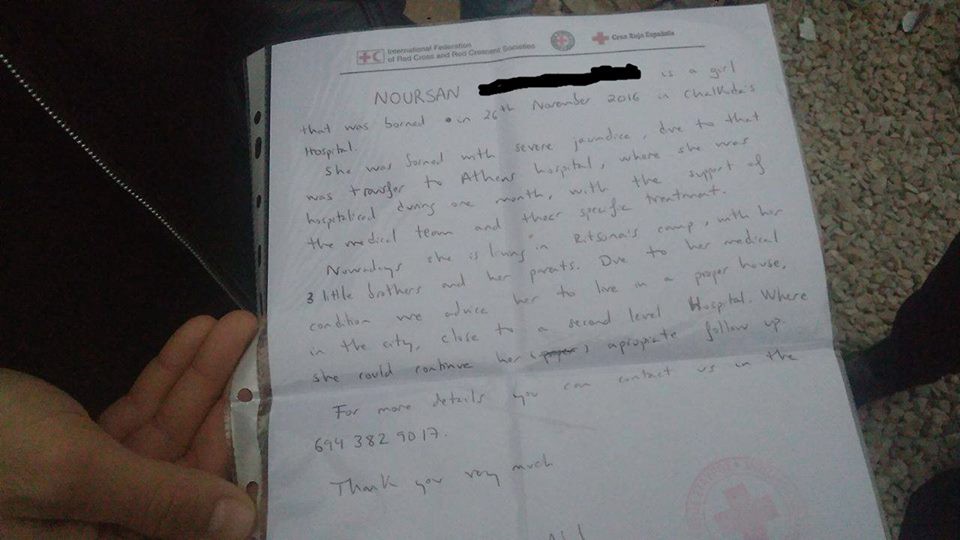 International Federation
of Red Cross and Red Crescent Societies
Cruz Roja Española
NOURSAN is a girl
that was borned in 26th November 2016 in Chalkida's
Hospital.
She was borned with severe jaundice, due to that
was transfer to Athens hospital, where she was
hospitalised during one month, with the support of
the medical team and their specific treatment.
Nowadays she is living in Ritsona's camp, with her
3 little brothers and her parents. Due to her medical
condition we advice her to live in a proper house,
in the city, close to a second level Hospital. Where
she could continue her (proper) apropiate follow up.
For more details you can contact us in the
694 382 9017.
Thank you very much